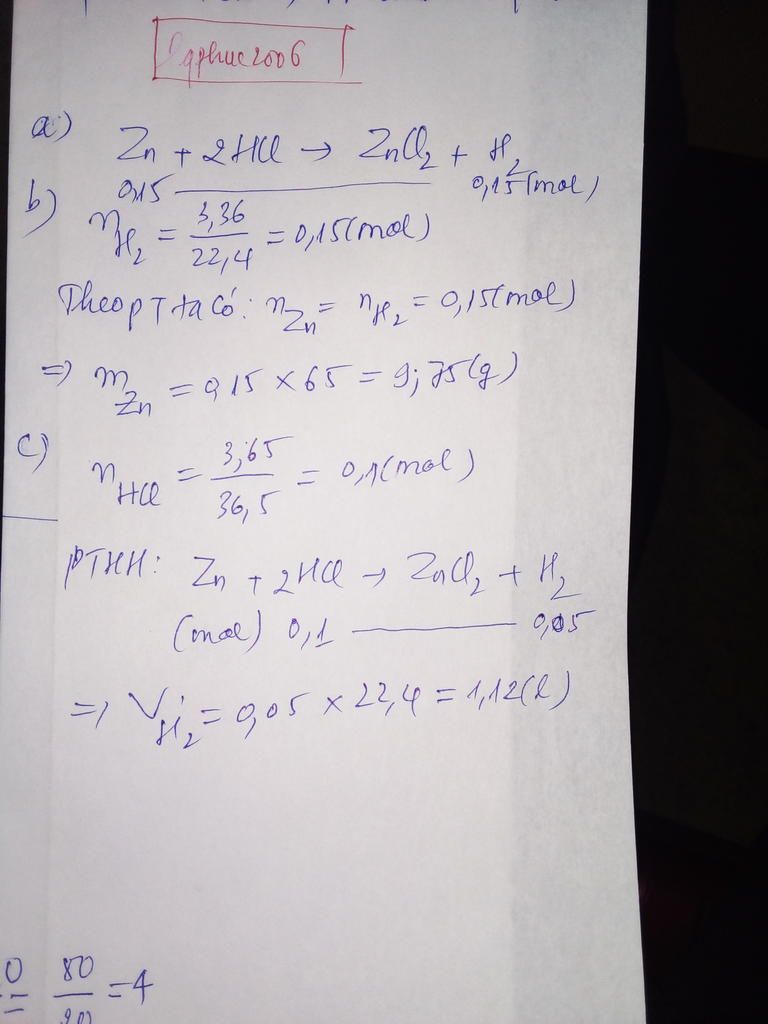 Gqphuc2006
a) Zn + 2HCl → ZnCl₂ + H₂
0,15 0,15 (mol)
b) nH₂ = 3,36/22,4 = 0,15 (mol)
Theo PT ta có: nZn = nH₂ = 0,15 (mol)
=> mZn = 0,15 × 65 = 9,75 (g)
c) nHCl = 3,65/36,5 = 0,1 (mol)
PTHH: Zn + 2HCl → ZnCl₂ + H₂
(mol) 0,1 0,05
=> VH₂ = 0,05 × 22,4 = 1,12 (l)
80/20 = 4